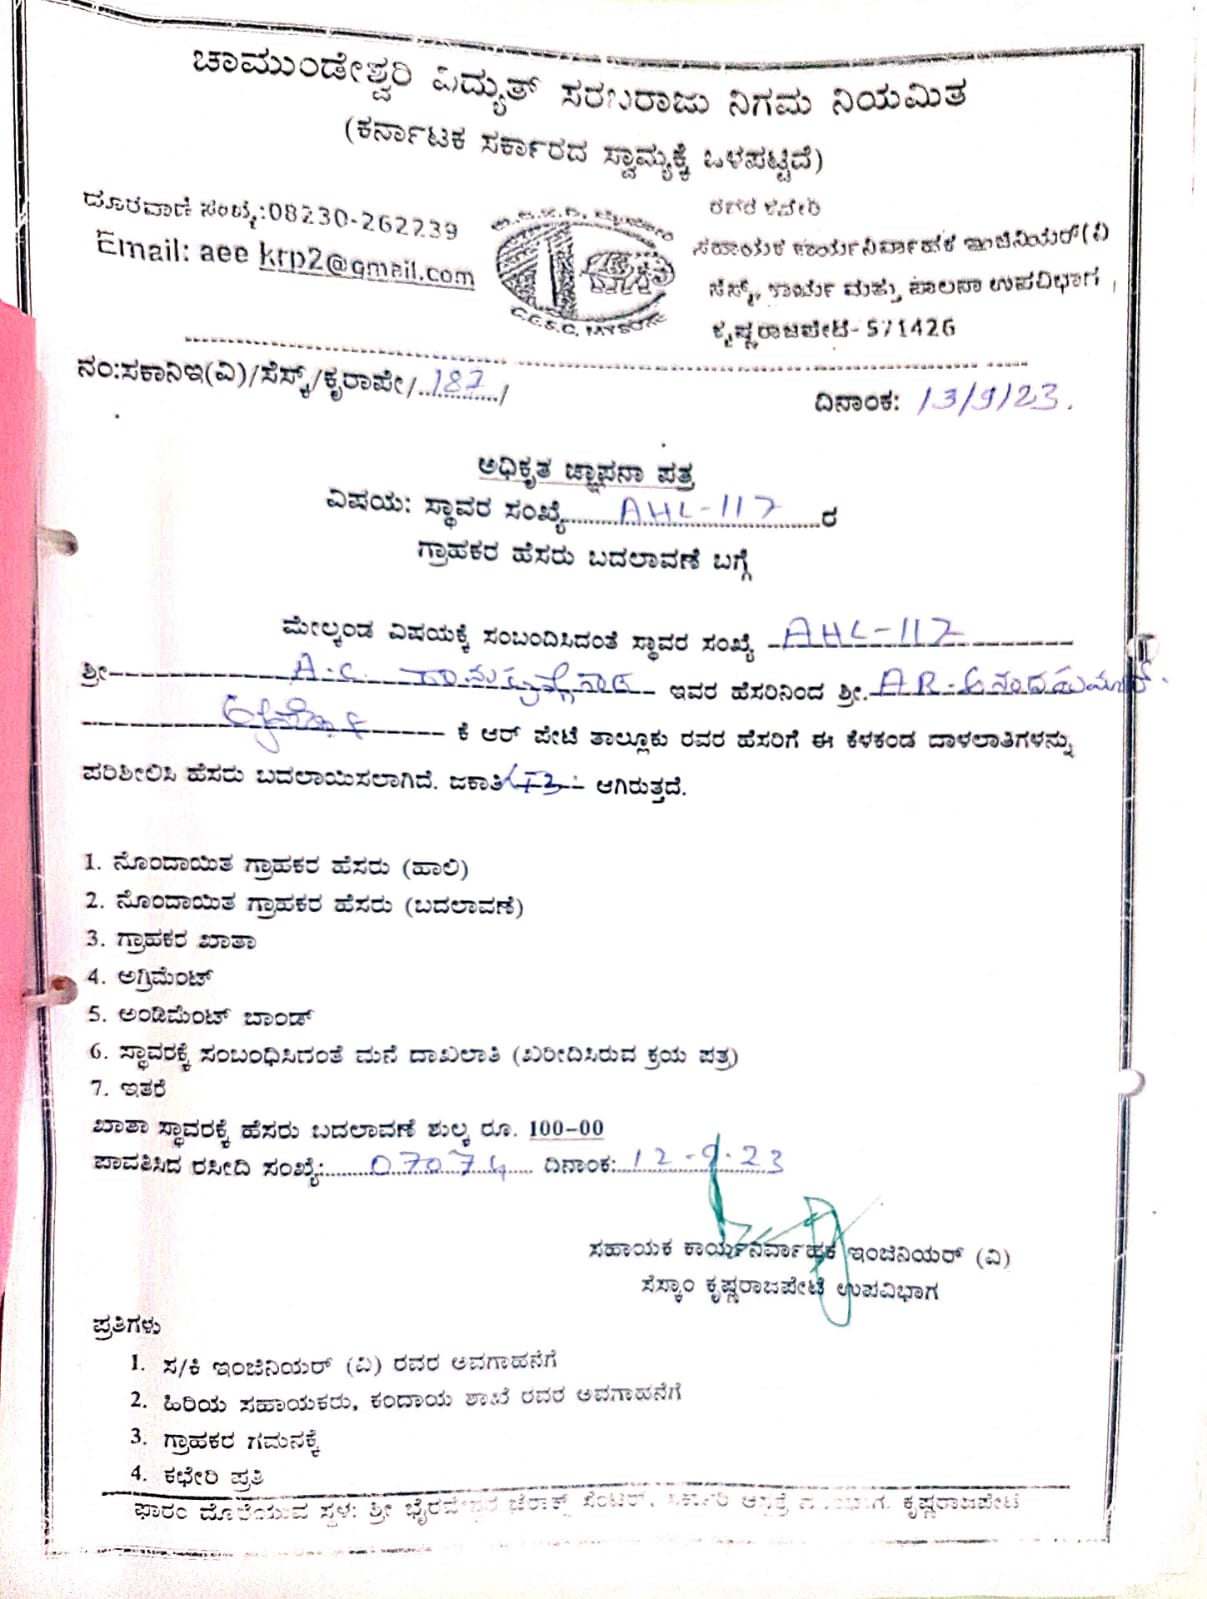 ಚಾಮುಂಡೇಶ್ವರಿ ವಿದ್ಯುತ್ ಸರಬರಾಜು ನಿಗಮ ನಿಯಮಿತ
(ಕರ್ನಾಟಕ ಸರ್ಕಾರದ ಸ್ವಾಮ್ಯಕ್ಕೆ ಒಳಪಟ್ಟಿದೆ)
ದೂರವಾಣಿ ಸಂಖ್ಯೆ:08230-262239
Email: aee krp2@gmail.com
C.E.S.C. MYSORE
ರವರ ಕಚೇರಿ
ಸಹಾಯಕ ಕಾರ್ಯನಿರ್ವಾಹಕ ಇಂಜಿನಿಯರ್(ವಿ
ಸೆಸ್ಕ್, ಕಾರ್ಯ ಮತ್ತು ಪಾಲನಾ ಉಪವಿಭಾಗ,
ಕೃಷ್ಣರಾಜಪೇಟೆ- 571426
ನಂ:ಸಕಾನಿಇ(ವಿ)/ಸೆಸ್ಕ್/ಕೃರಾಪೇ/..187../
ದಿನಾಂಕ: 13/9/23.
ಅಧಿಕೃತ ಜ್ಞಾಪನಾ ಪತ್ರ
ವಿಷಯ: ಸ್ಥಾವರ ಸಂಖ್ಯೆ......AHL-117......ರ
ಗ್ರಾಹಕರ ಹೆಸರು ಬದಲಾವಣೆ ಬಗ್ಗೆ
ಮೇಲ್ಕಂಡ ವಿಷಯಕ್ಕೆ ಸಂಬಂದಿಸಿದಂತೆ ಸ್ಥಾವರ ಸಂಖ್ಯೆ AHL-117
ಶ್ರೀ------ A.C. ------ ಇವರ ಹೆಸರಿನಿಂದ ಶ್ರೀ. AR-ಆನಂದಕುಮಾರ್.
------ ಕೆ ಆರ್ ಪೇಟೆ ತಾಲ್ಲೂಕು ರವರ ಹೆಸರಿಗೆ ಈ ಕೆಳಕಂಡ ದಾಳಲಾತಿಗಳನ್ನು
ಪರಿಶೀಲಿಸಿ ಹೆಸರು ಬದಲಾಯಿಸಲಾಗಿದೆ. ಜಕಾತಿ LT3 ಆಗಿರುತ್ತದೆ.
1. ನೊಂದಾಯಿತ ಗ್ರಾಹಕರ ಹೆಸರು (ಹಾಲಿ)
2. ನೊಂದಾಯಿತ ಗ್ರಾಹಕರ ಹೆಸರು (ಬದಲಾವಣೆ)
3. ಗ್ರಾಹಕರ ಖಾತಾ
4. ಅಗ್ರಿಮೆಂಟ್
5. ಅಂಡಿಮೆಂಟ್ ಬಾಂಡ್
6. ಸ್ಥಾವರಕ್ಕೆ ಸಂಬಂಧಿಸಿದಂತೆ ಮನೆ ದಾಖಲಾತಿ (ಖರೀದಿಸಿರುವ ಕ್ರಯ ಪತ್ರ)
7. ಇತರೆ
ಖಾತಾ ಸ್ಥಾವರಕ್ಕೆ ಹೆಸರು ಬದಲಾವಣೆ ಶುಲ್ಕ ರೂ. 100-00
ಪಾವತಿಸಿದ ರಸೀದಿ ಸಂಖ್ಯೆ:......07074...... ದಿನಾಂಕ:..12-9-23
ಸಹಾಯಕ ಕಾರ್ಯನಿರ್ವಾಹಕ ಇಂಜಿನಿಯರ್ (ವಿ)
ಸೆಸ್ಕಾಂ ಕೃಷ್ಣರಾಜಪೇಟೆ ಉಪವಿಭಾಗ
ಪ್ರತಿಗಳು
1. ಸ/ಕಿ ಇಂಜಿನಿಯರ್ (ವಿ) ರವರ ಅವಗಾಹನೆಗೆ
2. ಹಿರಿಯ ಸಹಾಯಕರು, ಕಂದಾಯ ಶಾಖೆ ರವರ ಅವಗಾಹನೆಗೆ
3. ಗ್ರಾಹಕರ ಗಮನಕ್ಕೆ
4. ಕಛೇರಿ ಪ್ರತಿ
ಫಾರಂ ದೊರೆಯುವ ಸ್ಥಳ: ಶ್ರೀ ಭೈರವೇಶ್ವರ ಜೆರಾಕ್ಸ್ ಸೆಂಟರ್, ಸರ್ಕಾರಿ ಆಸ್ಪತ್ರೆ ಕೃಷ್ಣರಾಜಪೇಟೆ